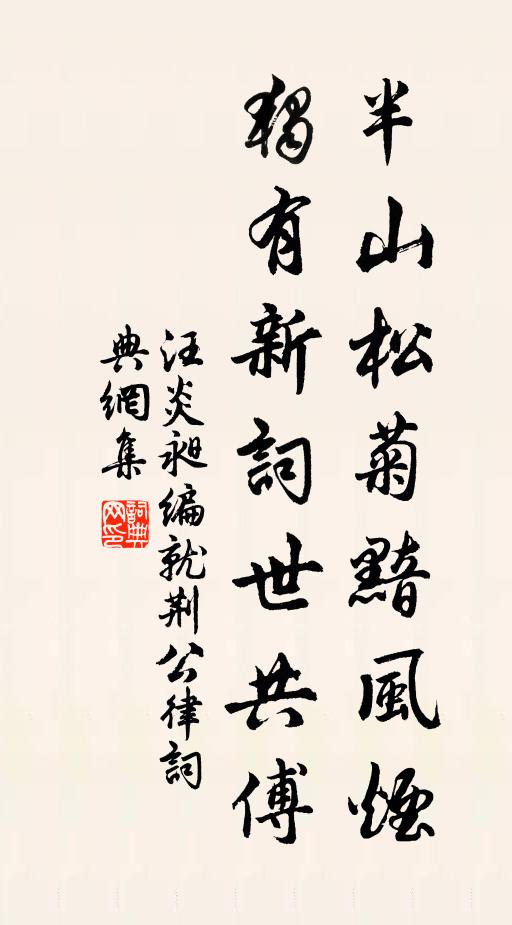 半山松菊黯風煙
獨有新詞世共傅
汪炎昶編就荆公律詞
典網集
詞典網印